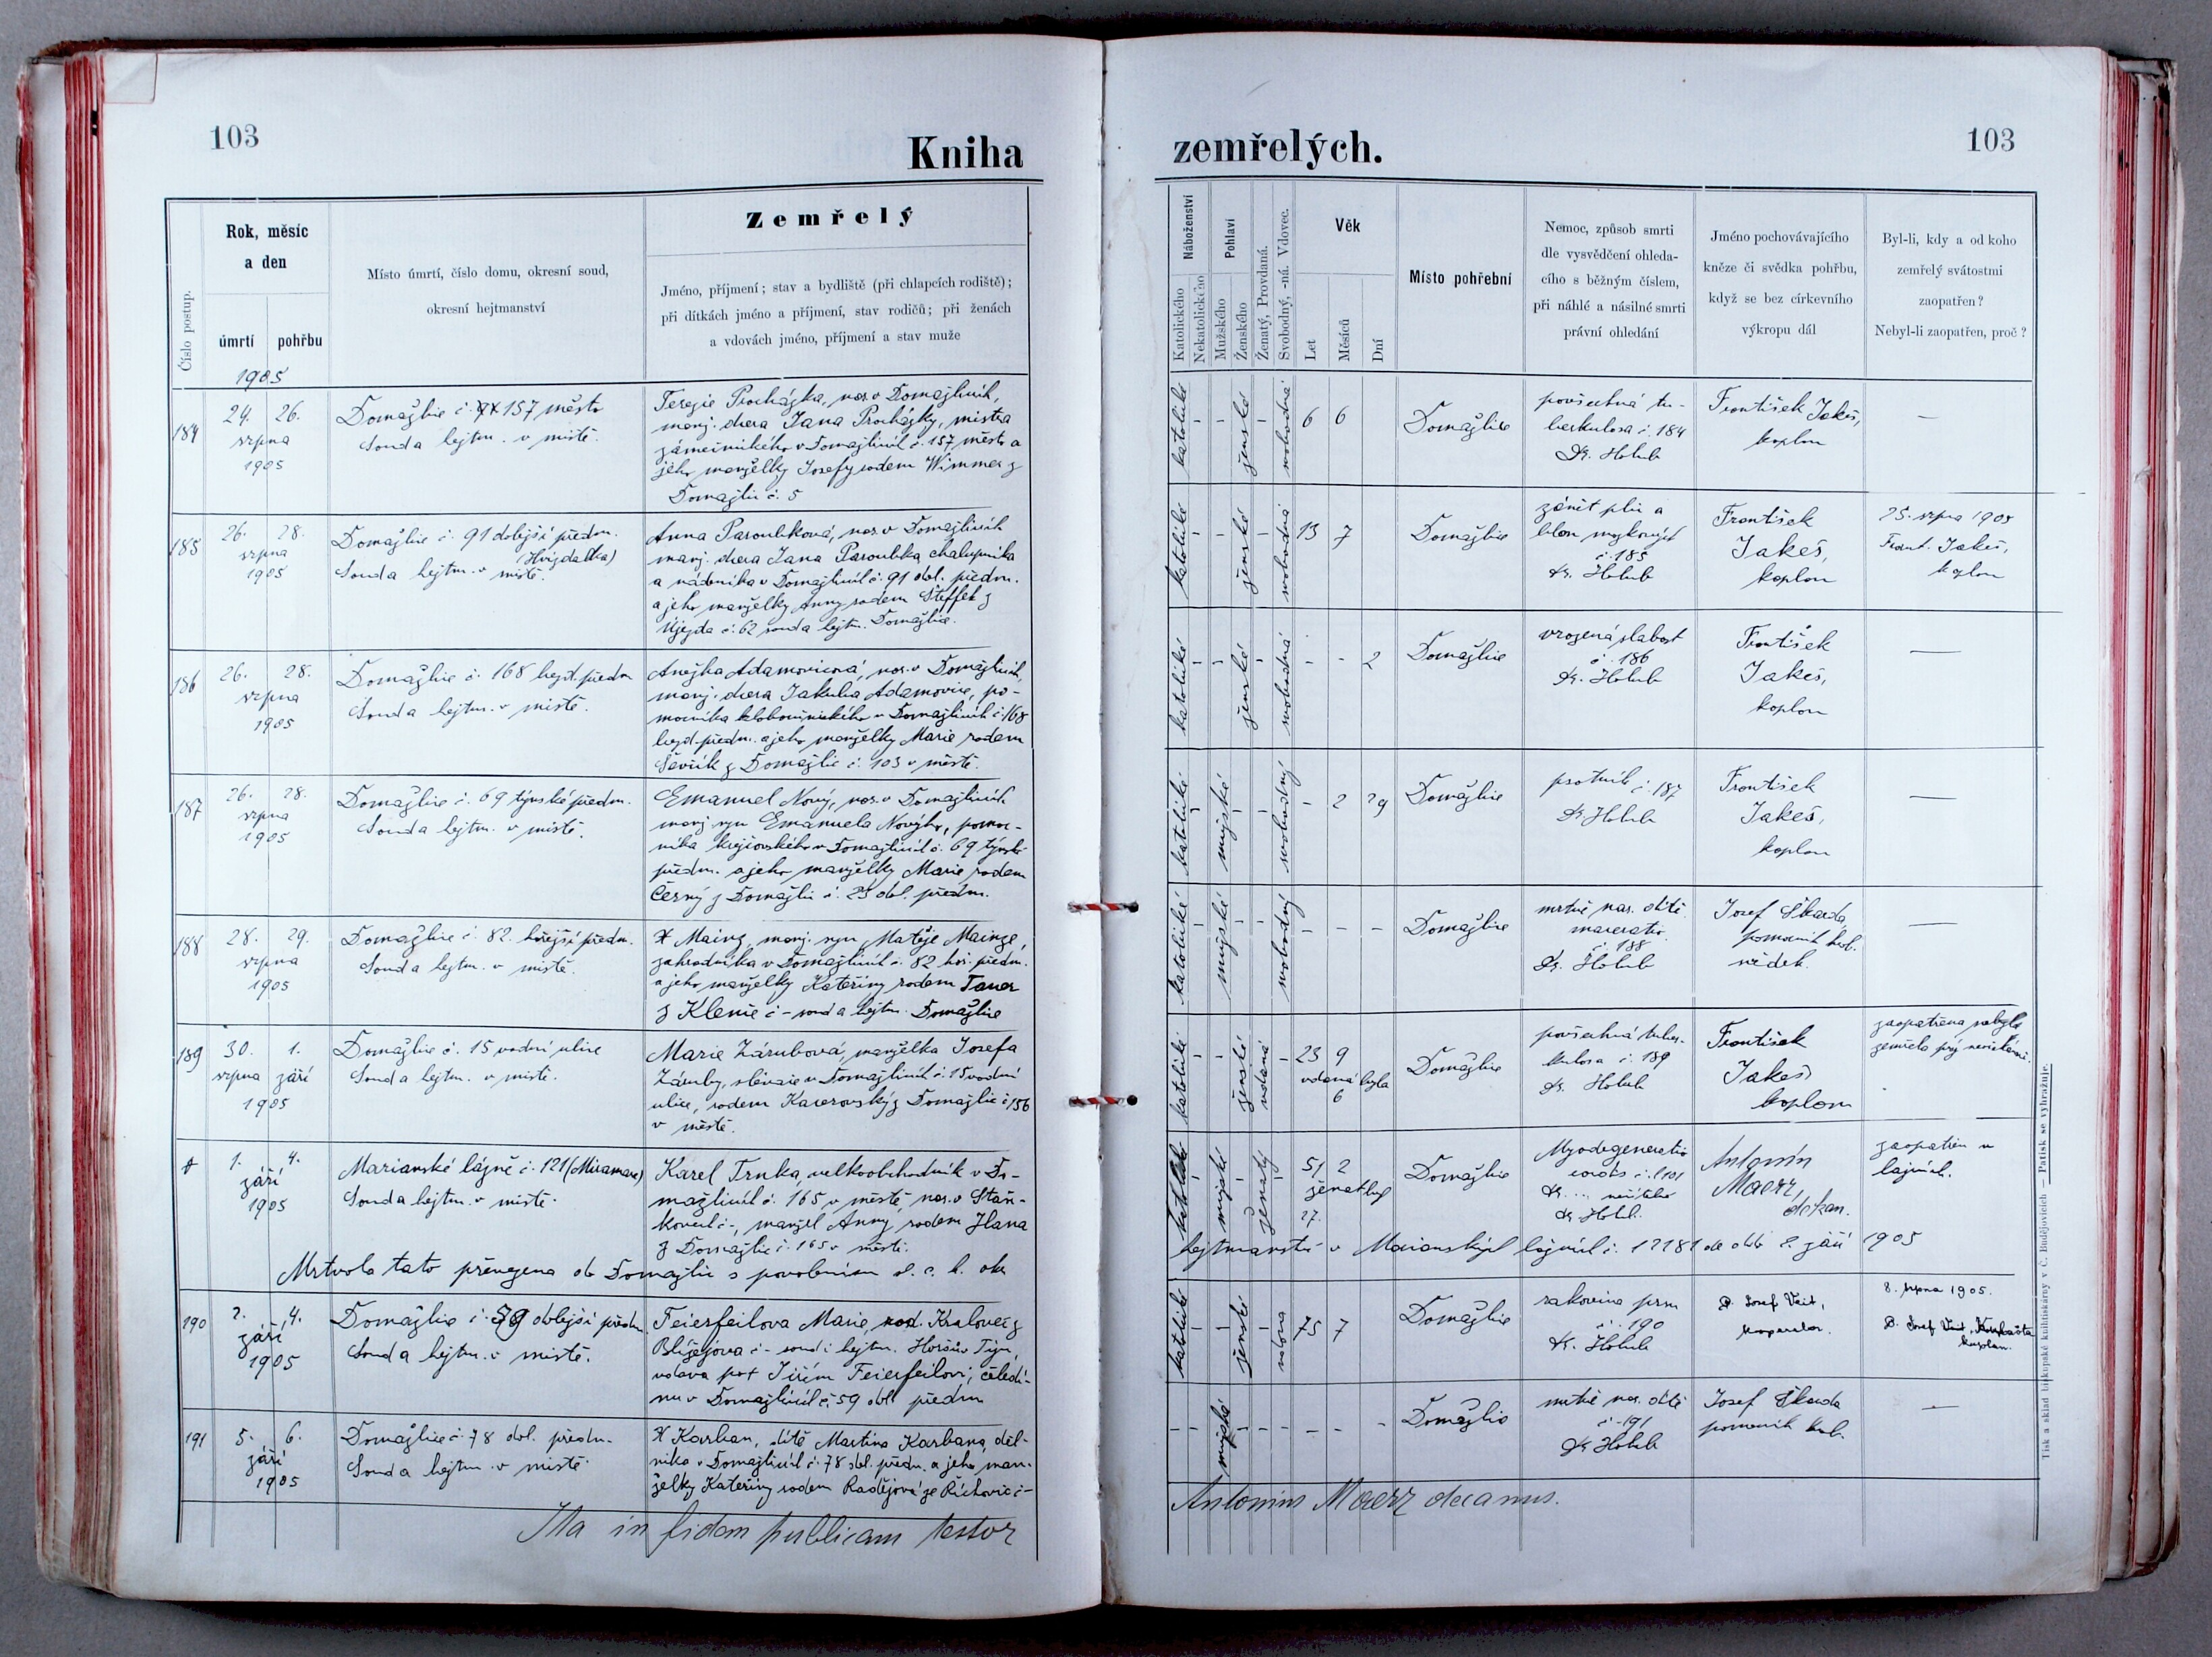 103
Kniha
zemřelých.
103
Číslo postup.
Rok, měsíc
a den
úmrtí pohřbu
Místo úmrtí, číslo domu, okresní soud,
okresní hejtmanství
Zemřelý
Jméno, příjmení; stav a bydliště (při chlapcích rodiště);
při dítkách jméno a příjmení, stav rodičů; při ženách
a vdovách jméno, příjmení a stav muže
Náboženství
Katolického
Nekatolického
Pohlaví
Mužského
Ženského
Ženatý, Provdaná.
Svobodný, -ná. Vdovec.
Věk
Let
Měsíců
Dní
Místo pohřební
Nemoc, způsob smrti
dle vysvědčení ohleda-
cího s běžným číslem,
při náhlé a násilné smrti
právní ohledání
Jméno pochovávajícího
kněze či svědka pohřbu,
když se bez církevního
výkropu dál
Byl-li, kdy a od koho
zemřelý svátostmi
zaopatřen?
Nebyl-li zaopatřen, proč?
1905
184
24. 26.
srpna
1905
Domažlice č. 157 město
Soud a hejtm. v místě.
Terezie Procházka, nar. v Domažlicích,
manž. dcera Jana Procházky, mistra
zámečnického v Domažlicích č. 157 město a
jeho manželky Josefy rodem Wimmer z
Domažlic č. 5
katolické
-
-
ženské
-
svobodná
6 6
Domažlice
povšechná tu-
berkulosa č. 184
Dr. Holub
František Jakeš,
kaplan
—
185
26. 28.
srpna
1905
Domažlice č. 91 dolejší předm.
(Hvízdalka)
Soud a hejtm. v místě.
Anna Paroubková, nar. v Domažlicích
manž. dcera Jana Paroubka, chalupníka
a nádeníka v Domažlicích č. 91 dol. předm.
a jeho manželky Anny rodem Steffek z
Újezda č. 62 soud a hejtm. Domažlice.
katolické
-
-
ženské
-
svobodná
13 7
Domažlice
zánět plic a
blan mozkových
č. 185
Dr. Holub
František
Jakeš,
kaplan
25. srpna 1905
Frant. Jakeš,
kaplan
186
26. 28.
srpna
1905
Domažlice č. 168 hejd. předm
Soud a hejtm. v místě.
Anežka Adamovicová, nar. v Domažlicích,
manž. dcera Jakuba Adamovice, po-
mocníka kloboučnického v Domažlicích č. 168
hejd. předm. a jeho manželky Marie rodem
Ševčík z Domažlic č. 103 v městě.
katolické
-
-
ženské
-
svobodná
- - 2
Domažlice
vrozená slabost
č. 186
Dr. Holub
František
Jakeš,
kaplan
—
187
26. 28.
srpna
1905
Domažlice č. 69 týnské předm.
Soud a hejtm. v místě.
Emanuel Nový, nar. v Domažlicích
manž. syn Emanuela Nového, pomoc-
níka krejčovského v Domažlicích č. 69 týnské
předm. a jeho manželky Marie rodem
Černý z Domažlic č. 25 dol. předm.
katolické
-
mužské
-
-
svobodný
- 2 29
Domažlice
psotník č. 187
Dr. Holub
František
Jakeš,
kaplan
—
188
28. 29.
srpna
1905
Domažlice č. 82. hořejší předm.
Soud a hejtm. v místě.
X Mainz, manž. syn Matěje Mainze,
zahradníka v Domažlicích č. 82 hoř. předm.
a jeho manželky Kateřiny rodem Tauer
z Klenče č - soud a hejtm. Domažlice
katolické
-
mužské
-
-
svobodný
- - -
Domažlice
mrtvě nar. dítě
maceratio.
č. 188
Dr. Holub
Josef Škarda,
pomocník hrob.
svědek.
—
189
30. 1.
srpna září
1905
Domažlice č. 15 vodní ulice
Soud a hejtm. v místě.
Marie Zárubová, manželka Josefa
Záruby, slévače v Domažlicích č. 15 vodní
ulice, rodem Kacerovský z Domažlic č 156
v městě.
katolické
-
-
ženské
vdaná
-
23 9
vdaná byla
6
Domažlice
povšechná tuber-
kulosa č. 189
Dr. Holub
František
Jakeš
kaplan
zaopatřena nebyla
zemřela prý
1. 4.
září
1905
Marianské lázně č. 121 (Miramare)
Soud a hejtm. v místě.
Karel Trnka, velkoobchodník v Do-
mažlicích č. 165 v městě, nar. v Staň-
kovech č -, manžel Anny rodem Hana
z Domažlic č. 165 v městě.
katolické
-
mužské
-
ženatý
-
51 2
ženat byl
27.
Domažlice
Myodegeneratio
cordis č. 101
Dr. Holub.
Antonín
Maerz,
děkan.
zaopatřen v
lázních.
Mrtvola tato převezena do Domažlic s povolením c. k. okr.
hejtmanství v Marianských lázních č. 12181 de dto 2. září 1905
190
2. 4.
září
1905
Domažlice č. 59 dolejší předm
Soud a hejtm. v místě.
Feierfeilova Marie, rod. Kralovec z
Blížejova č - soud i hejtm. Horšův Týn,
vdova po † Jiřím Feierfeilovi, čeledí-
nu v Domažlicích č. 59 dol předm
katolické
-
-
ženské
-
vdova
75 7
Domažlice
rakovina prsu
č. 190
Dr. Holub
P. Josef Veit,
kooperator.
8. srpna 1905.
P. Josef Veit,
kaplan.
191
5. 6.
září
1905
Domažlice č. 78 dol. předm.
Soud a hejtm. v místě
X Karban, dítě Martina Karbana, děl-
níka v Domažlicích č. 78 dol. předm. a jeho man-
želky Kateřiny rodem Radějová ze Říchovic č -
-
-
mužské
-
-
-
- - -
Domažlice
mrtvě nar. dítě
č. 191
Dr. Holub
Josef Škarda
pomocník hrob.
—
Ita in fidem publicam testor
Antonius Maerz decanus.
Tisk a sklad biskupské knihtiskárny v Č. Budějovicích — Patisk se vyhražuje.